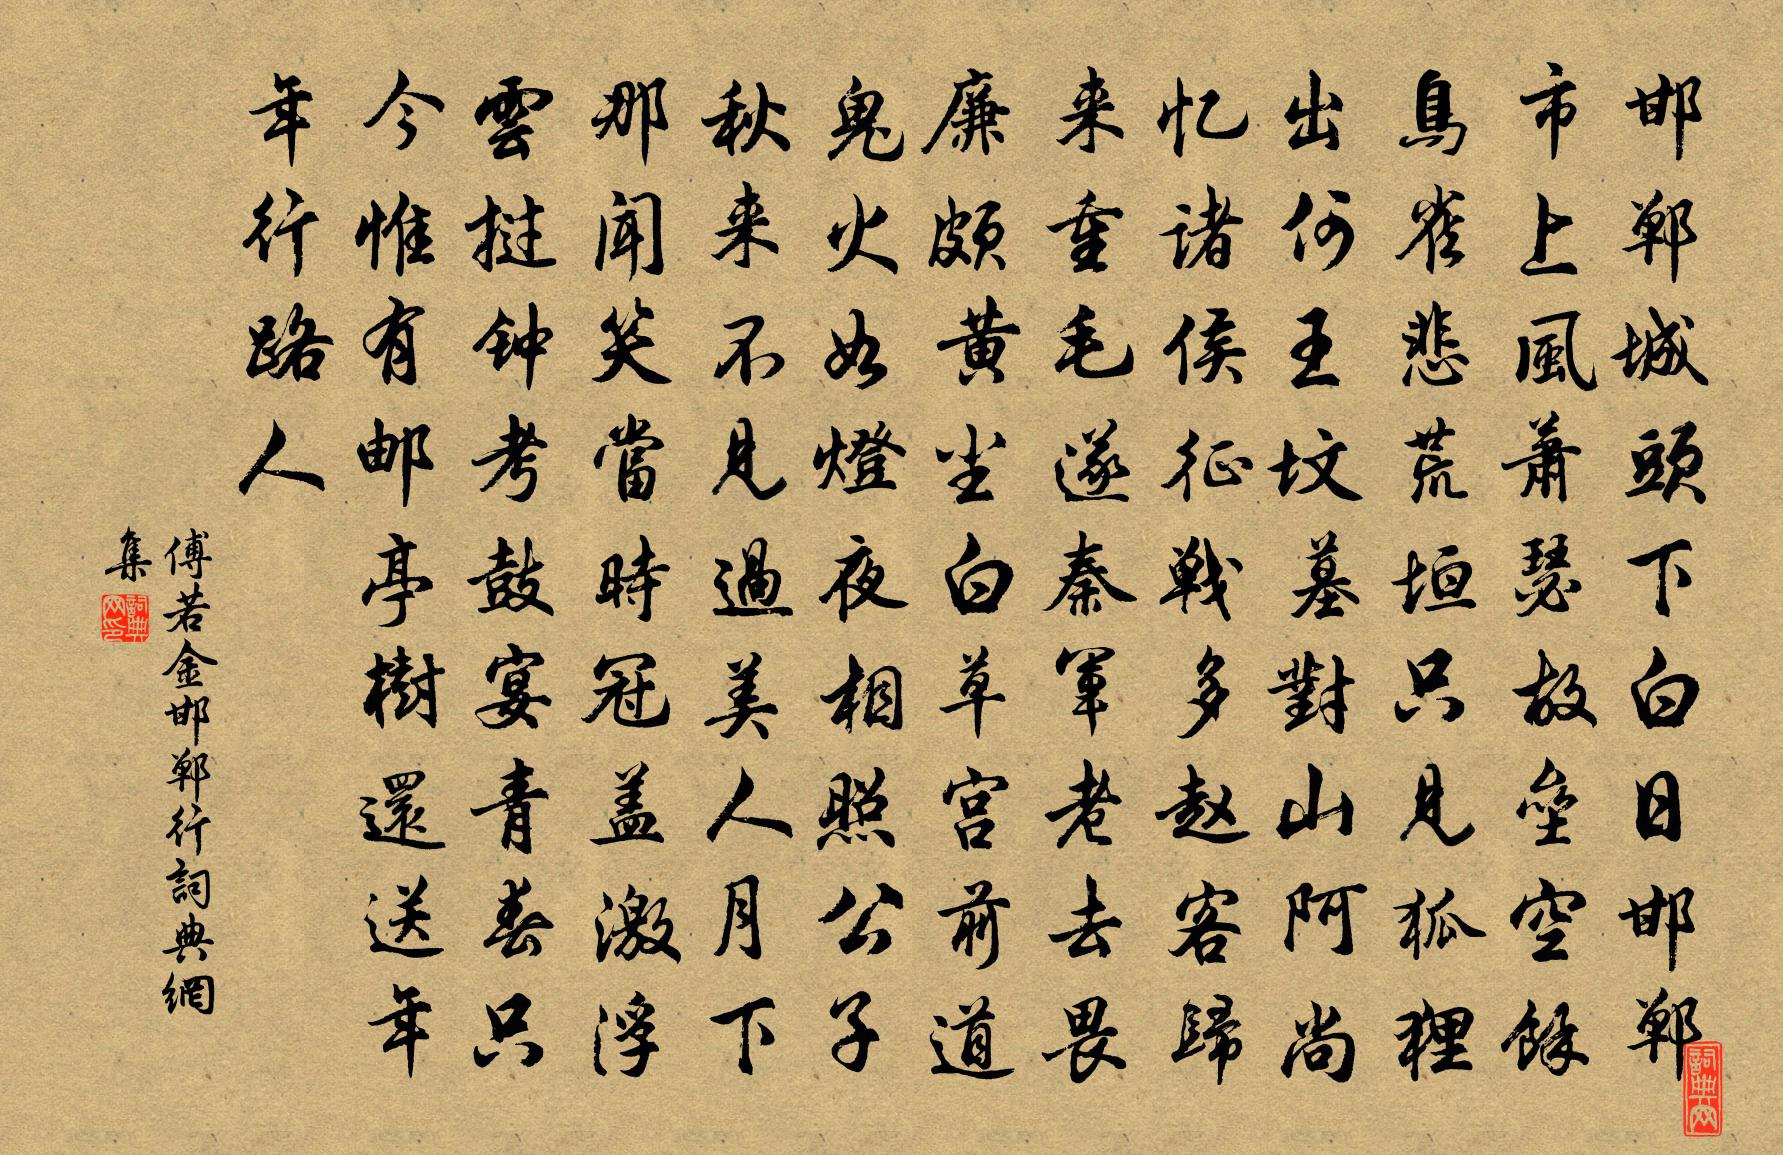 邯郸城頭下白日邯郸
市上風萧瑟故壘空餘
鳥雀悲荒垣只見狐狸
出何王坟墓對山阿尚
忆诸侯征戦多赵客歸
来重毛遂秦軍老去畏
廉颇黄尘白草宫前道
鬼火如燈夜相照公子
秋来不見過美人月下
那闻笑當時冠盖激浮
雲挝钟考鼓宴青春只
今惟有邮亭樹還送年
年行路人
傅若金邯郸行詞典網
集
詞典网印
詞典网